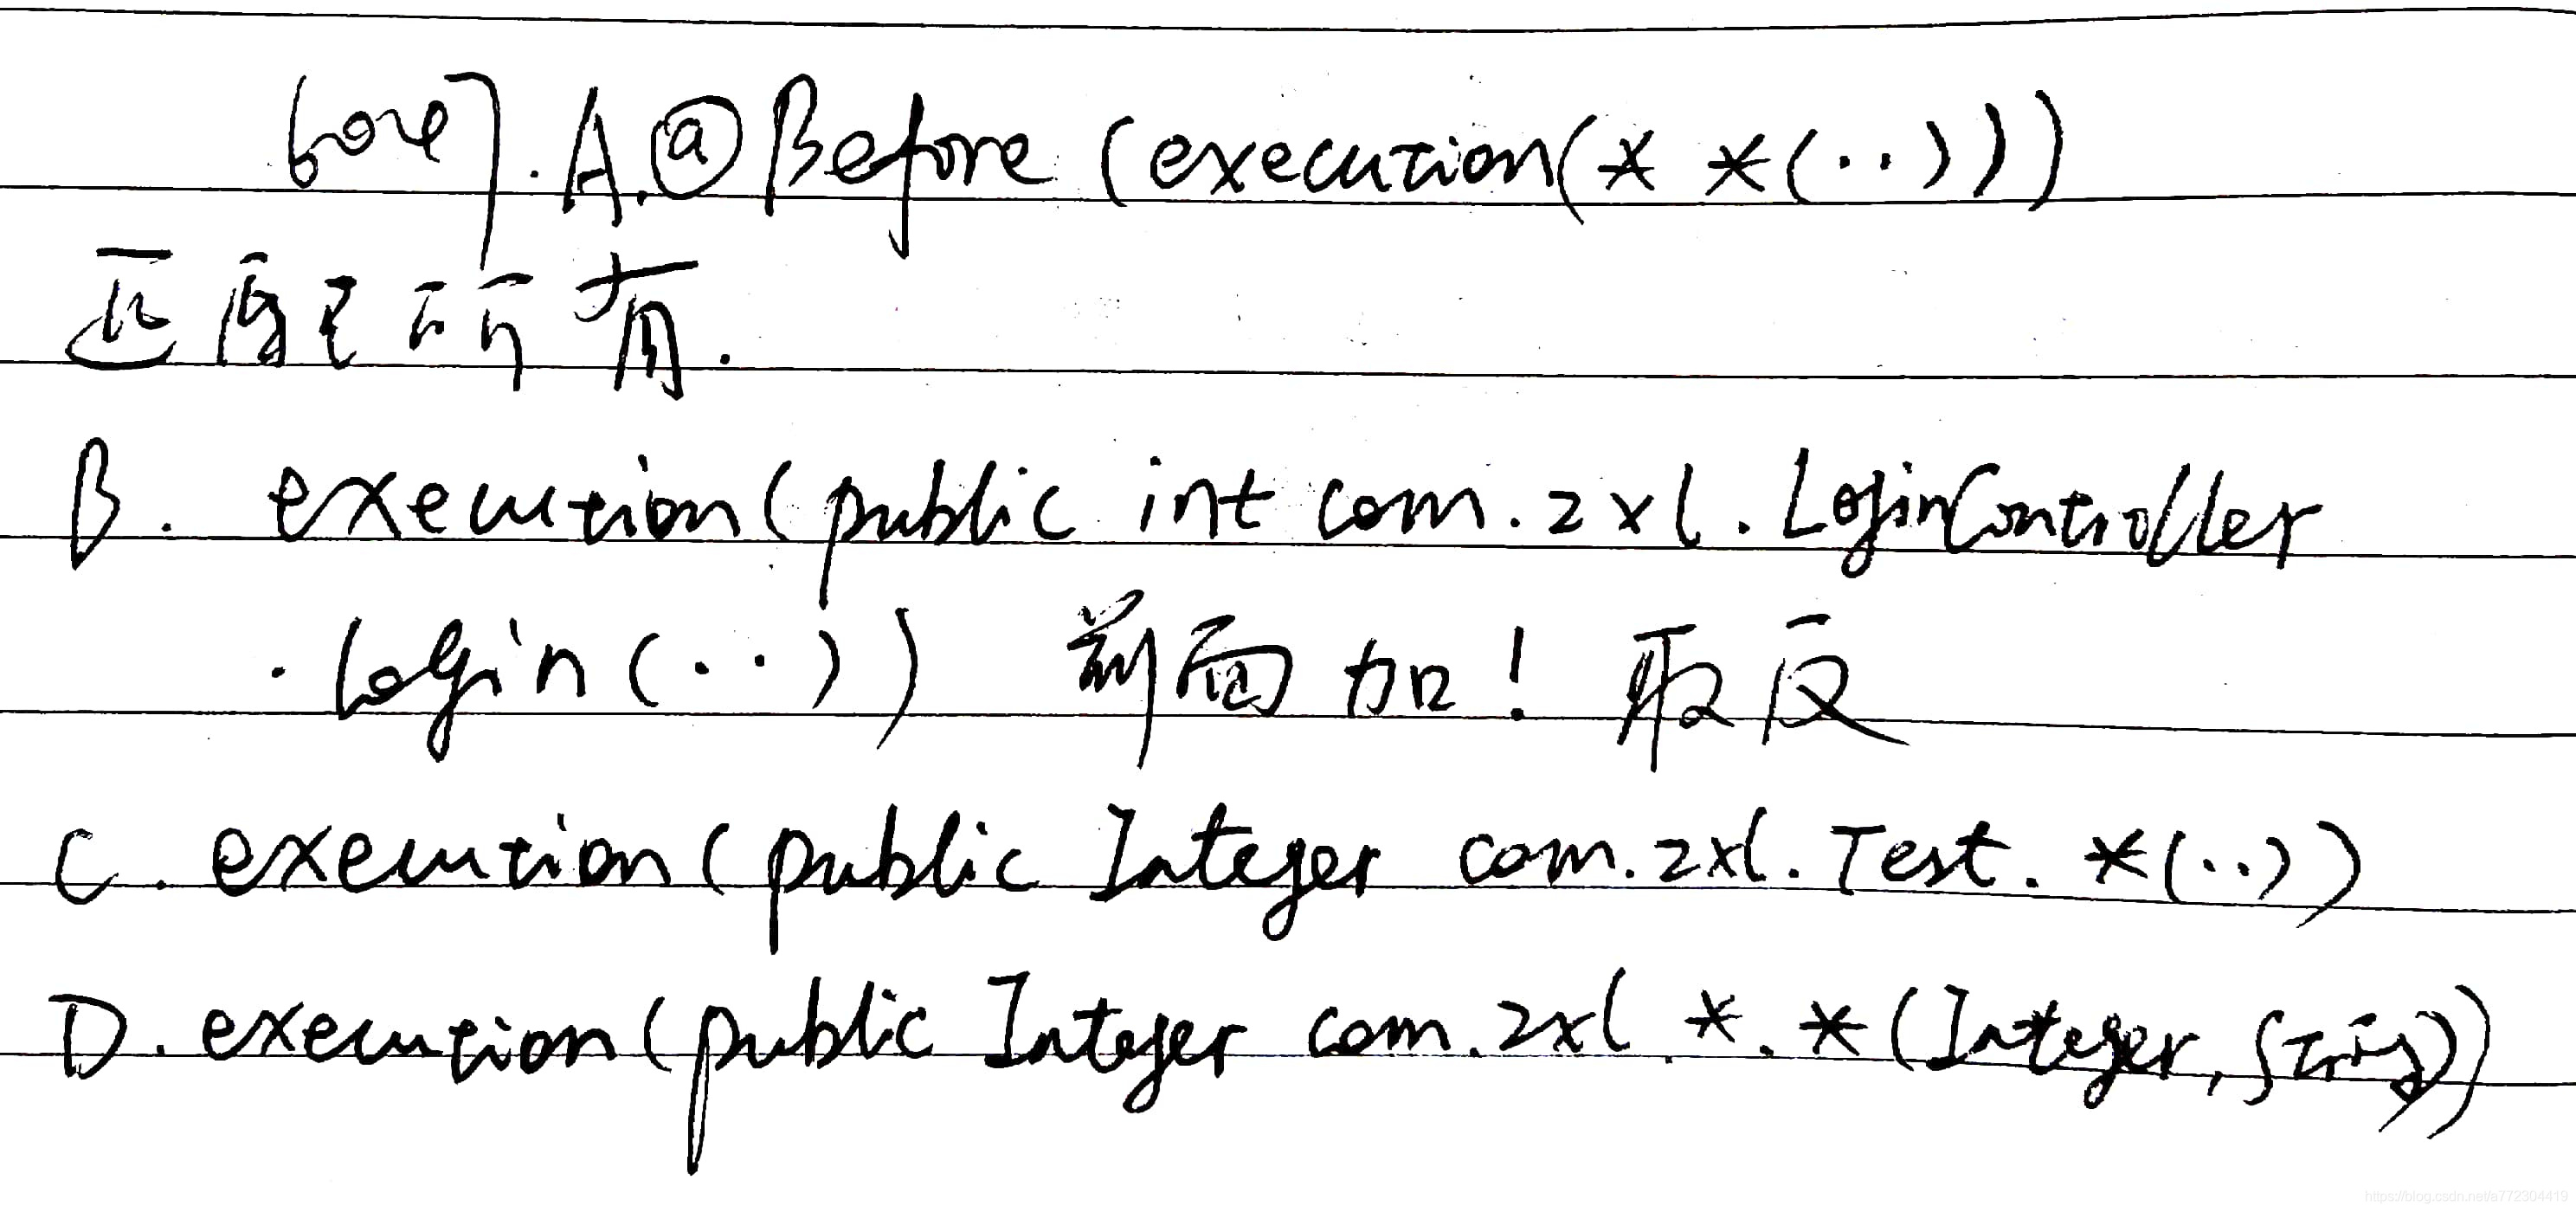 6007. A. @Before (execution(* *(..)))
匹配所有.
B. execution(public int com.zxl.LoginController
.login(..)) 前面加! 取反
C. execution(public Integer com.zxl.Test.*(..))
D. execution(public Integer com.zxl.*.*(Integer,String))
https://blog.csdn.net/a772304419